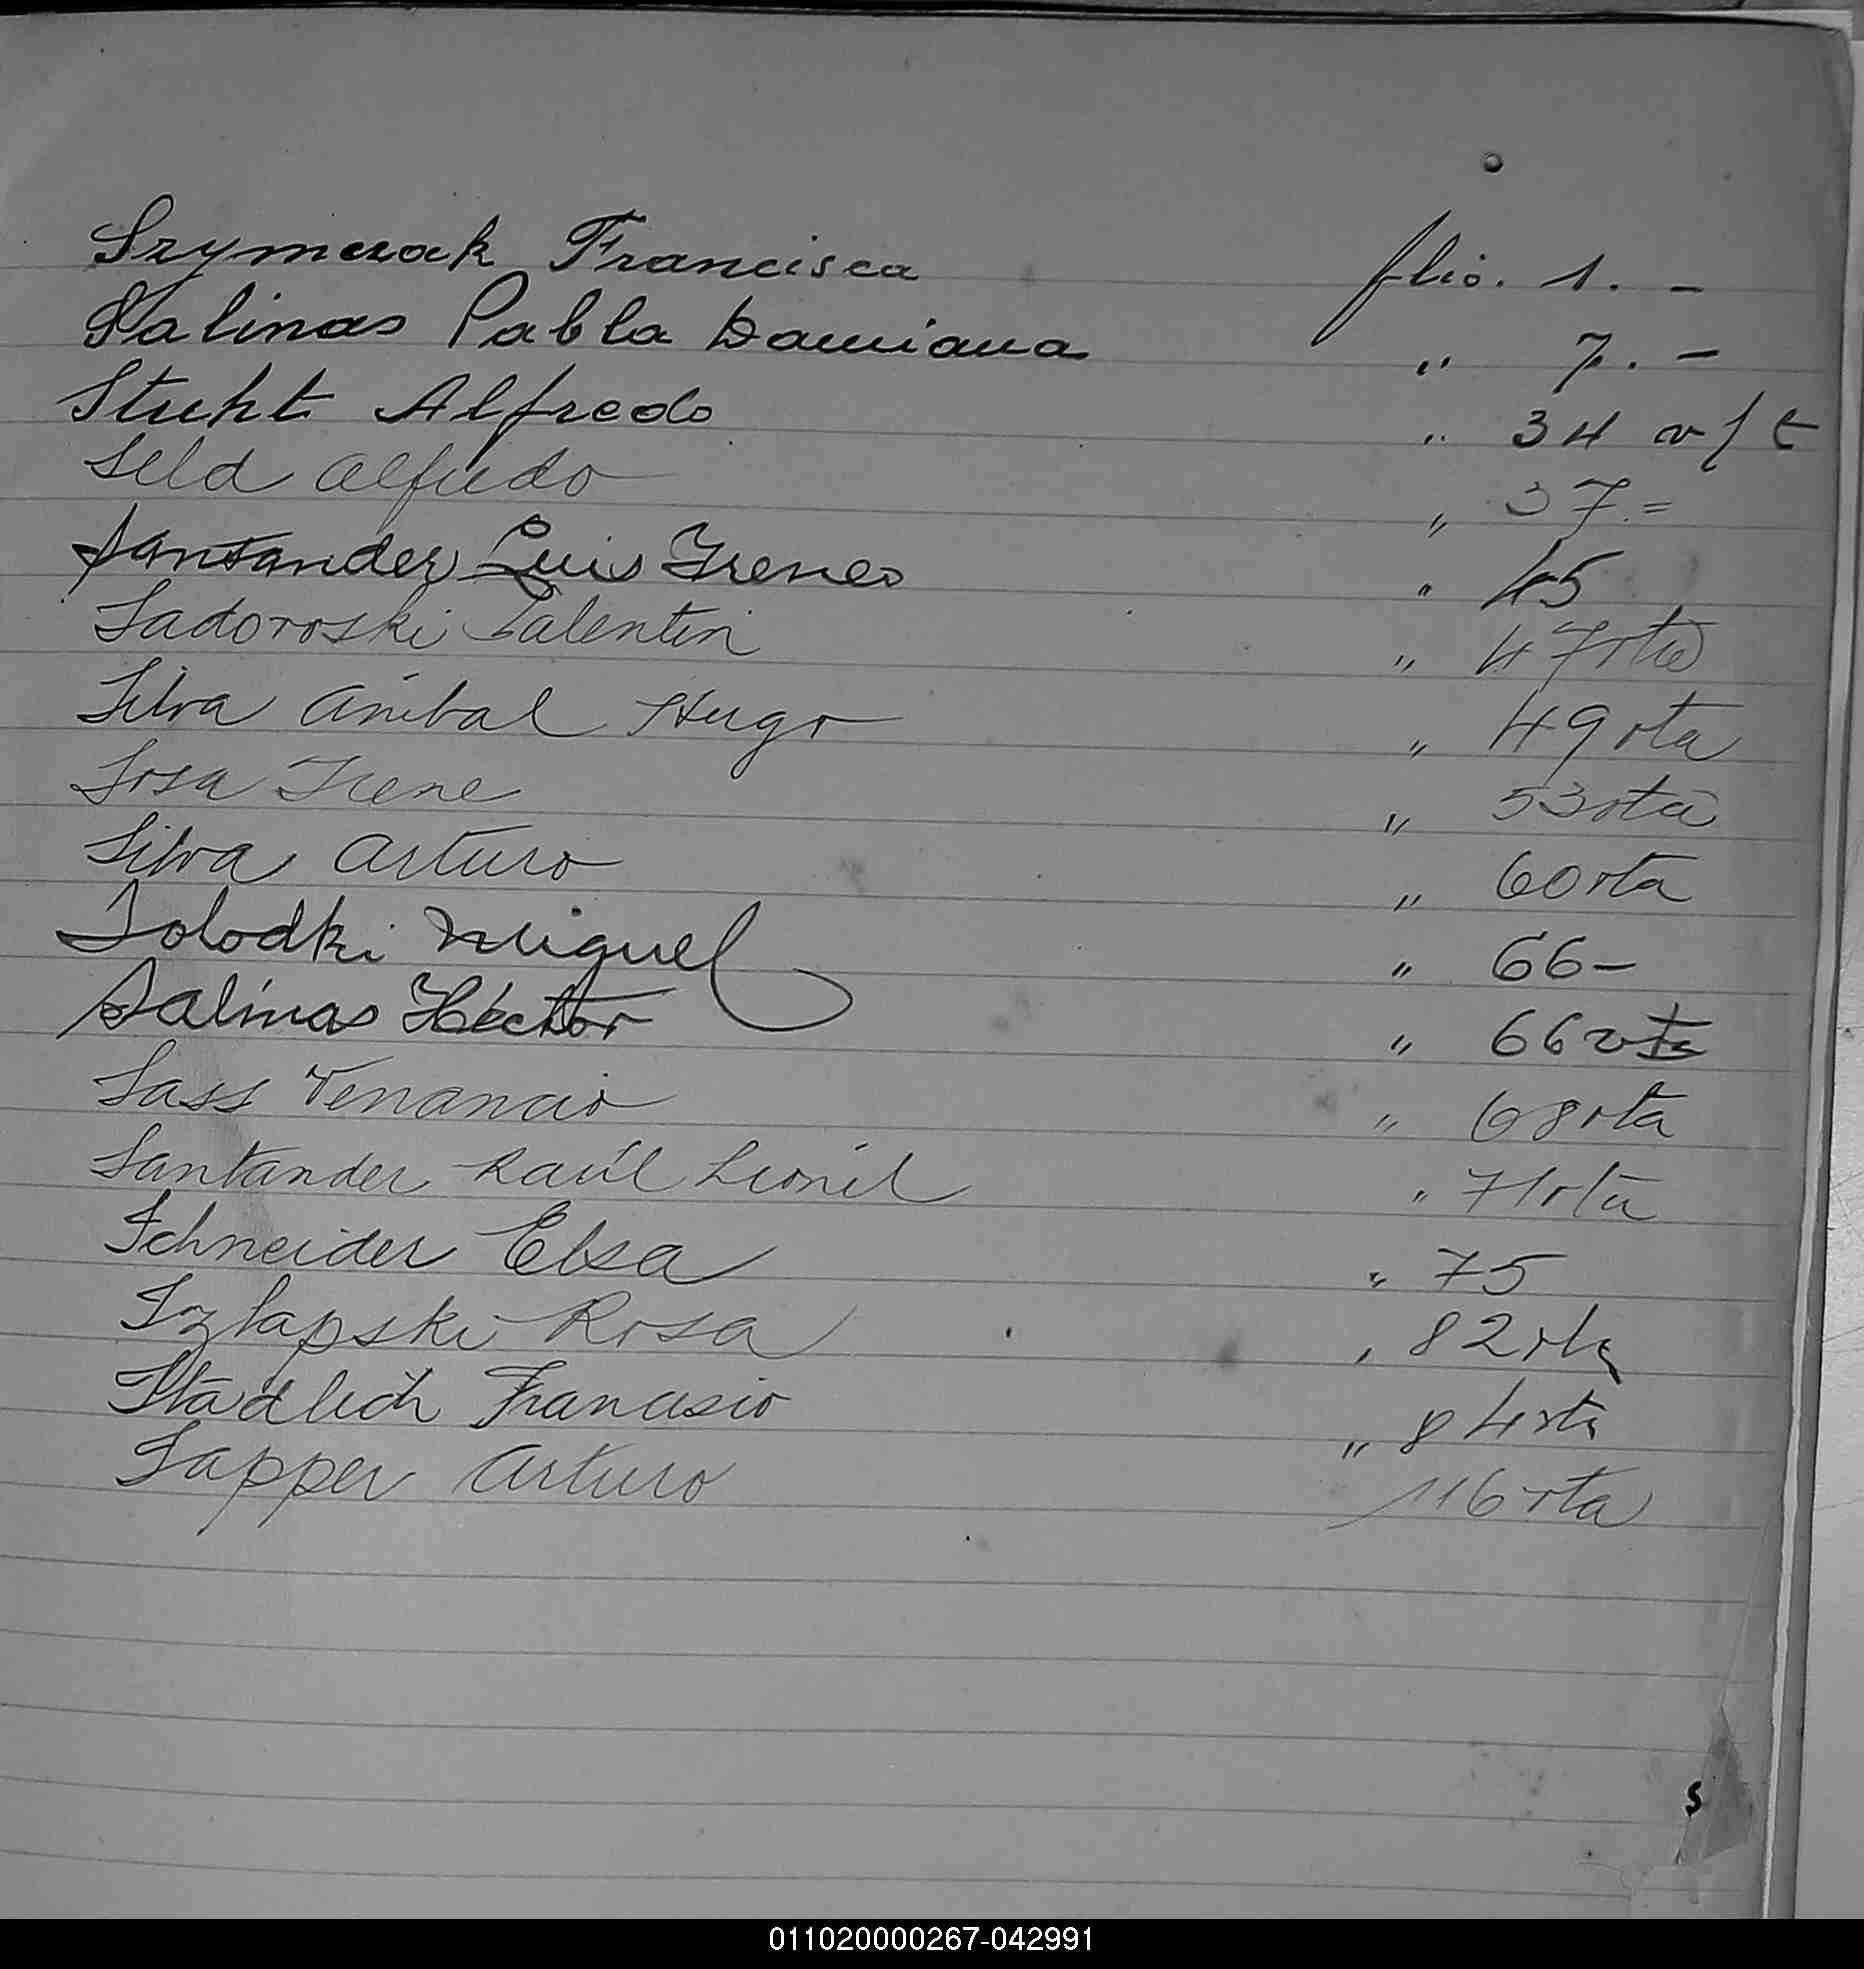 Szymczak Francisca flio. 1. -
Salinas Pabla Damiana " 7. -
Stuht Alfredo " 34 v/t
Seld Alfredo " 37.=
Santander Luis Ireneo " 45
Sadoroski Valentin " 47 vta
Silva Anibal Hugo " 49 vta
Sosa Irene " 53 vta
Silva Arturo " 60 vta
Solodki Miguel " 66-
Salinas Héctor " 66 vta
Sass Venancio " 68 vta
Santander Raúl Leonel " 71 vta
Schneider Elsa " 75
Szlapski Rosa " 82 vta
Francisco " 84 vta
Sapper Arturo 116 vta
S
011020000267-042991